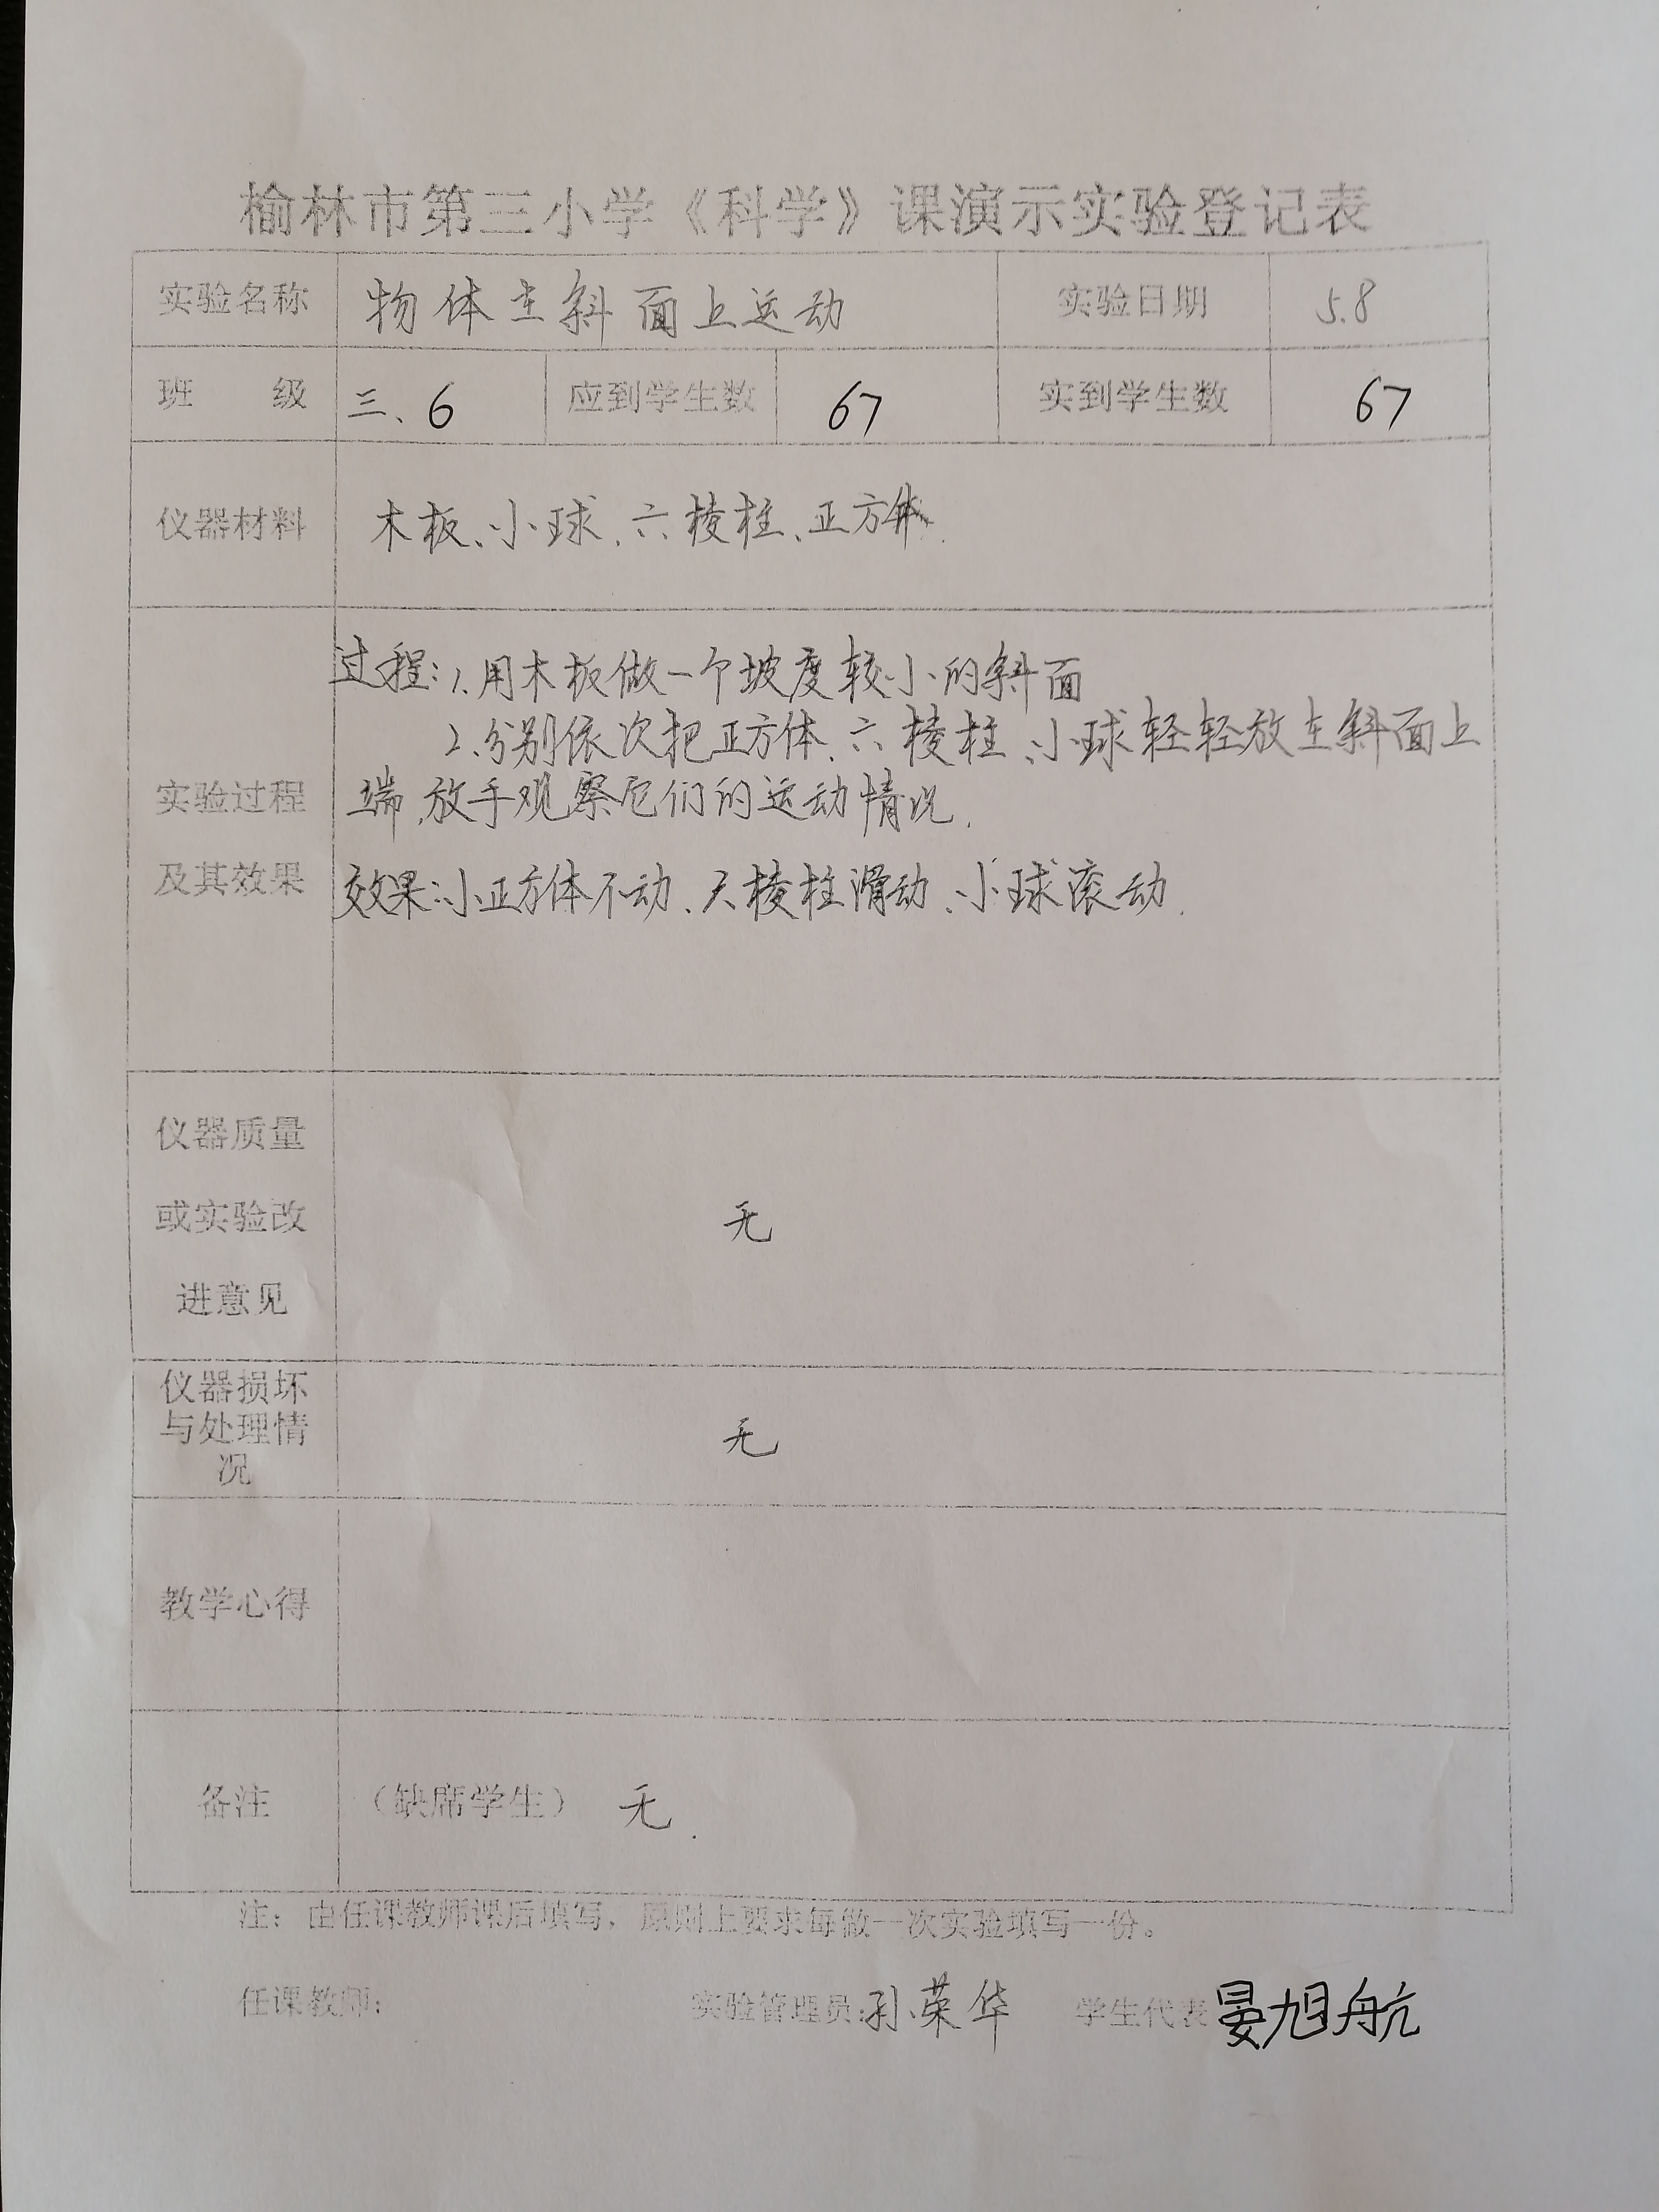 榆林市第三小学《科学》课演示实验登记表
实验名称 物体在斜面上运动 实验日期 5.8
班 级 三、6 应到学生数 67 实到学生数 67
仪器材料 木板、小球、六棱柱、正方体.
过程:1.用木板做一个坡度较小的斜面
2.分别依次把正方体、六棱柱、小球轻轻放在斜面上
实验过程 端,放手观察它们的运动情况.
及其效果 效果:小正方体不动、六棱柱滑动、小球滚动.
仪器质量
或实验改 无
进意见
仪器损坏
与处理情 无
况
教学心得
备注 (缺席学生) 无.
注:由任课教师课后填写,原则上要求每做一次实验填写一份。
任课教师: 实验管理员:孙荣华 学生代表 晏旭航